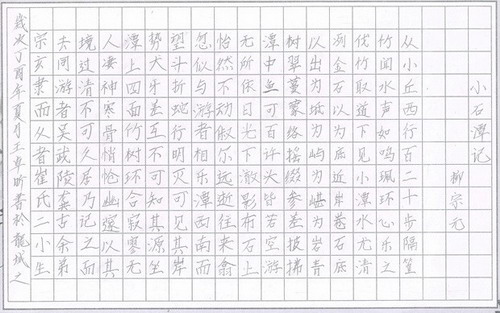 小石潭记
柳宗元
从小丘西行百二十步隔篁
竹闻水声如鸣珮环心乐之
伐竹取道下见小潭水尤清
冽全石以为底近岸卷石底
以出为坻为屿为嵁为岩青
树翠蔓蒙络摇缀参差披拂
潭中鱼可百许头皆若空游
无所依日光下澈影布石上
怡然不动俶尔远逝往来翕
忽似与游者相乐潭西南而
望斗折蛇行明灭可见其岸
势犬牙差互不可知其源坐
潭上四面竹树环合寂寥无
人凄神寒骨悄怆幽邃以其
境过清不可久居乃记之而
去同游者吴武陵龚古余弟
宗玄隶而从者崔氏二小生
岁次丁酉年夏月王卓昕書於龍城之